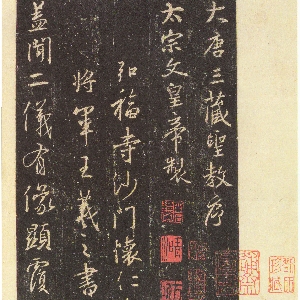 大唐三藏聖教序
太宗文皇帝製
弘福寺沙門懷仁
將軍王羲之書
蓋聞二儀有像顯覆